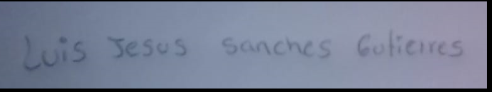 Luis Jesus Sanches Gutierres